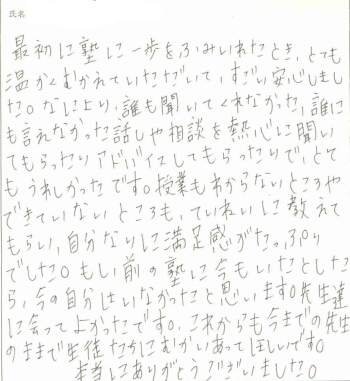 氏名
最初に塾に一歩をふみいれたとき、とても
温かくむかれていただいて、すごい安心しまし
た。なにより、誰も聞いてくれなかった、誰に
も言えなかった話しや相談を熱心に聞い
てもらったりアドバイスしてもらったりで、とて
もうれしかったです。授業もわからないところや
できていないところも、ていねいに教えて
もらい、自分なりに満足感がたっぷり
でした。もし前の塾に今もいたとした
ら、今の自分はいなかったと思います。先生達
に会ってよかったです。これからも今までの先生
のままで生徒たちにむかいあってほしいです。
本当にありがとうございました。